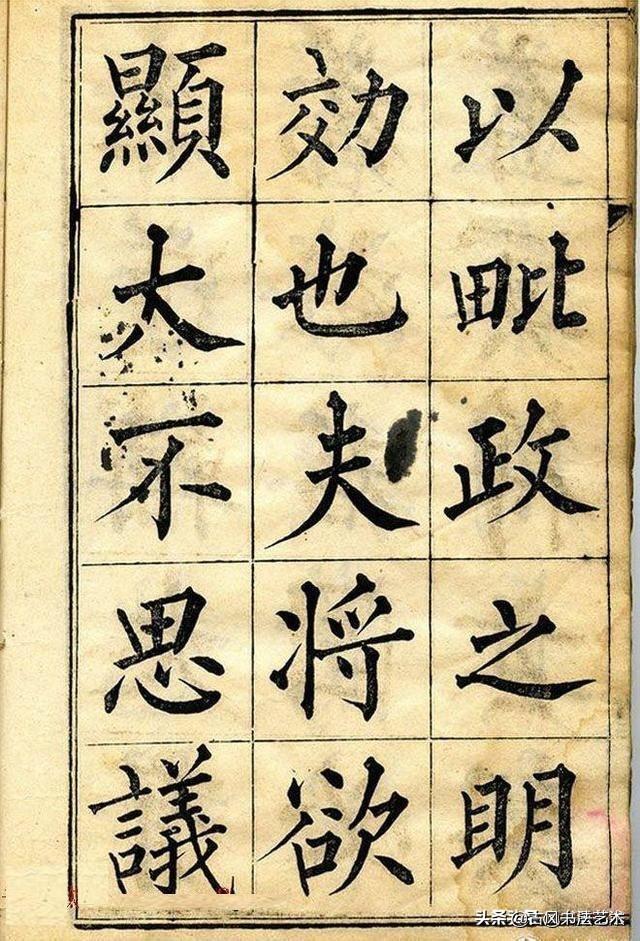 以毗政之明
効也夫将欲
顯大不思議
头条 @古风书法艺术